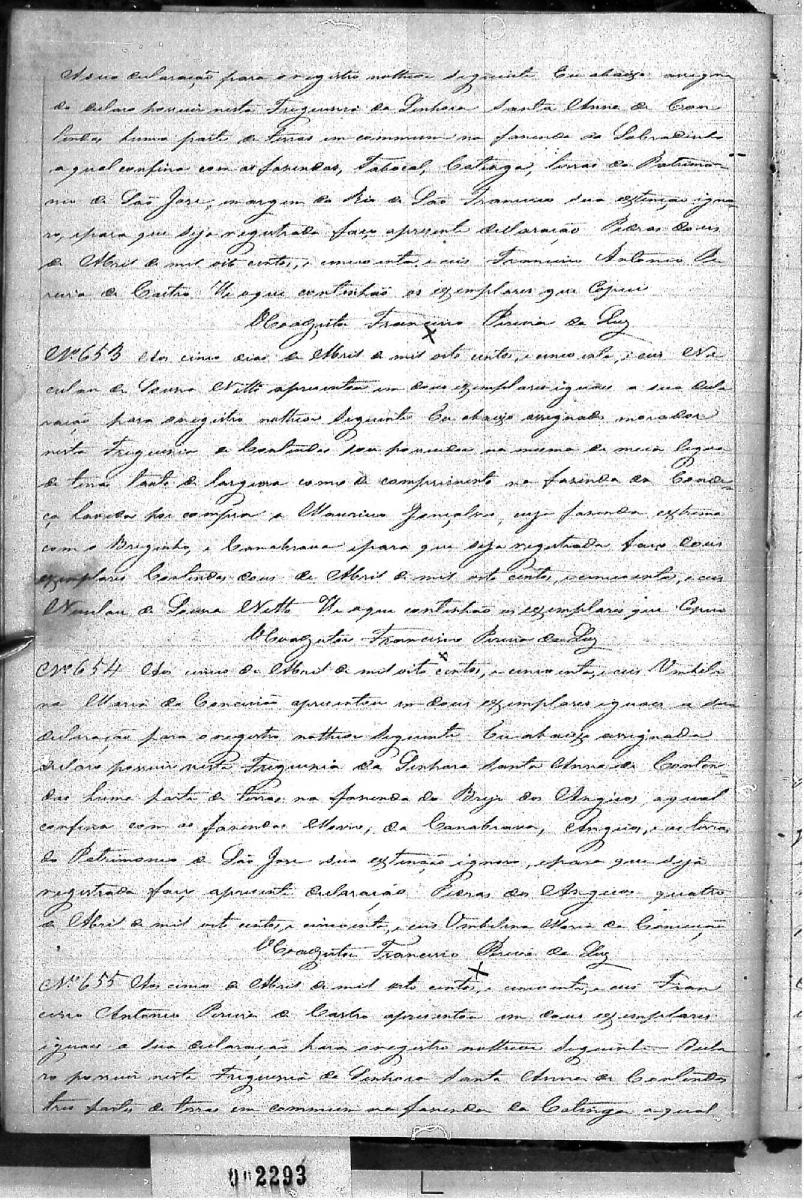 a sua declaração para o registro no theor seguinte Eu abaixo assigna
do declaro possuir nesta Freguesia da Senhora Santa Anna de Con
tendas huma parte de terras em commum na fazenda do Sobradinho
a qual confina com as fazendas, Tabocal, Catinga, terras do Patrimo
nio de São José, e margem do Rio de São Francisco sua extenção igno
ro, e para que seja registrada faço a presente declaração Pedras dous
de Abril de mil oito centos, e cincoenta, e seis Francisco Antonio Pe
reira de Castro He o que continhão os exemplares que Copiei
O Coadjutor Francisco Pereira da Luz
Nº 653 Aos cinco dias de Abril de mil oito centos, e cincoenta, e seis Ni
culau de Souza Netto apresentou em dous exemplares iguaes a sua decla
ração para o registro no theor seguinte Eu abaixo assignado morador
nesta Freguesia de Contendas sou possuidor na mesma de meia legua
de terras tanto de largura como de comprimento na fazenda da
havida por compra a Mauricio Gonçalves, cuja fazenda extrema
com o Brejinho, e Canabrava e para que seja registrada faço dous
exemplares Contendas dous de Abril de mil oito centos, e cincoenta, e seis
Niculau de Souza Netto He o que continhão os exemplares que Copiei
O Coadjutor Francisco Pereira da Luz
Nº 654 Aos cinco de Abril de mil oito centos, e cincoenta, e seis Umbeli
na Maria da Conceição apresentou em dous exemplares iguaes a sua
declaração para o registro no theor seguinte Eu abaixo assignada
declaro possuir nesta Freguesia da Senhora Santa Anna de Conten
das huma parte de terras na fazenda do Brejo dos Angicos, a qual
confina com as fazendas Morro, da Canabrava, Angicos, e as terras
do Patrimonio de São José sua extenção ignoro, e para que seja
registrada faço a presente declaração Pedras dos Angicos quatro
de Abril de mil oito centos, e cincoenta, e seis Umbelina Maria da Conceição
O Coadjutor Francisco Pereira da Luz
Nº 655 Aos cinco de Abril de mil oito centos, e cincoenta, e seis Fran
cisco Antonio Pereira de Castro apresentou em dous exemplares
iguaes a sua declaração para o registro no theor seguinte Decla
ro possuir nesta Freguesia da Senhora Santa Anna de Contendas
tres partes de terras em commum na fazenda da Catinga a qual
2293